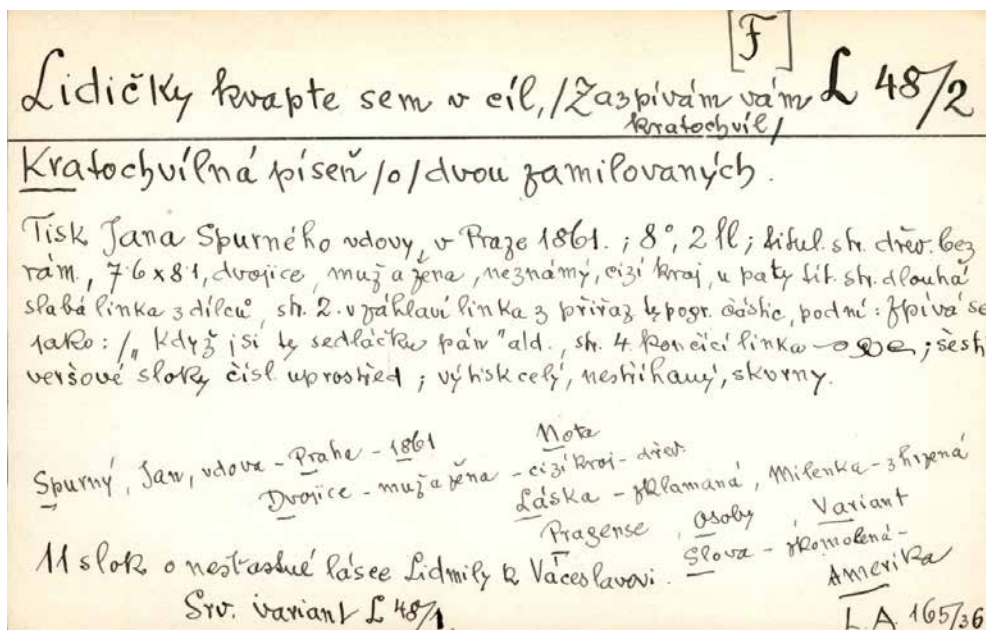 [F]
Lidičky kvapte sem v cíl, / Zazpívám vám L 48/2
kratochvíl /
Kratochvílná píseň /o/ dvou zamilovaných.
Tisk Jana Spurného vdovy, v Praze 1861. ; 8°, 2 ll ; titul. str. dřev. bez
rám., 7·6 x 8·1, dvojice, muž a žena, neznámý, cizí kraj, u paty tit. str. dlouhá
slabá linka z dílců, str. 2. v záhlaví linka z přiřaz typogr. částic, pod ní : Zpívá se
jako : /„ Když jsi ty sedláčku pán " ald., str. 4. končící linka ; šesti
veršové sloky čísl. uprostřed ; výtisk celý, nestřihaný, skvrny.
Spurný, Jan, vdova - Praha - 1861 Nota
Dvojice - muž a žena - cizí kraj - dřev.
Láska - zklamaná, Milenka - zhrzená
Pragense Osoby Variant
Slova - zkomolená -
11 slok o nešťastné lásce Lidmily k Váceslavovi. Amerika
Srv. variant L 48/1. L.A. 165/36